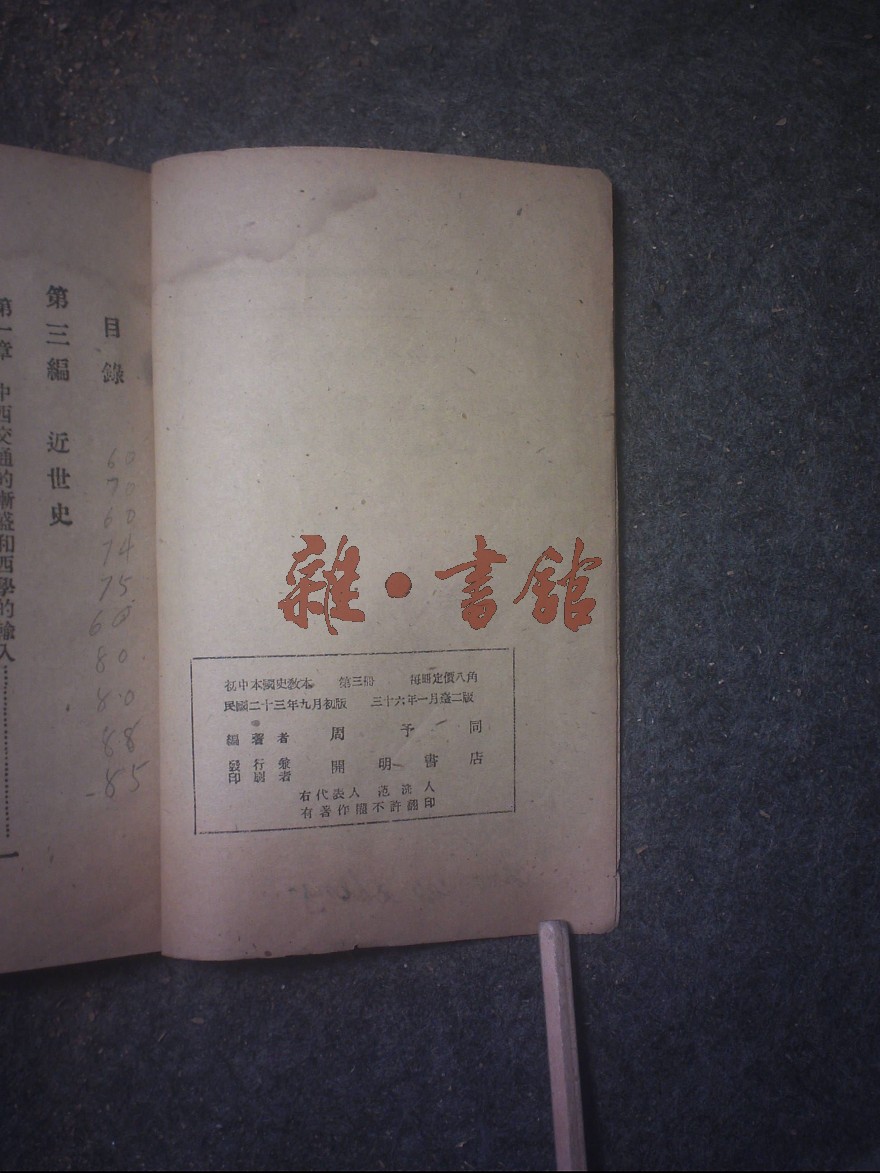 目錄
第三編 近世史
第一章 中西交通的漸盛和西學的輸入………………一
60
70
60
74
75
60
80
80
88
85
雜•書館
初中本國史教本 第三冊 每冊定價八角
民國二十三年九月初版 三十六年一月臺二版
編著者 周予同
發行兼印刷者 開明書店
右代表人 范洗人
有著作權不許翻印